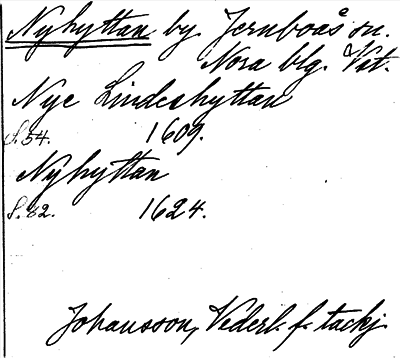 Nyhyttan by Jernboås sn.
Nora blg. Vst.
Nye Lindeshyttan
S. 54. 1609.
Nyhyttan
S. 82. 1624.
Johansson, Vederl. f. tackj.